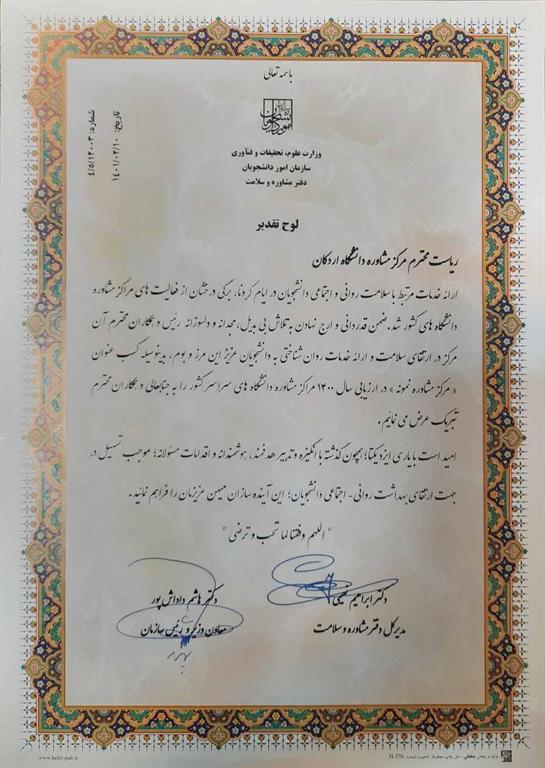 باسمه تعالی
شماره: ۴/۵/۱۲۰۰۳
تاریخ: ۱۴۰۱/۰۲/۱۰
سازمان امور دانشجویان
وزارت علوم، تحقیقات و فنآوری
سازمان امور دانشجویان
دفتر مشاوره و سلامت
لوح تقدیر
ریاست محترم مرکز مشاوره دانشگاه اردکان
ارائه خدمات مرتبط با سلامت روانی و اجتماعی دانشجویان در ایام کرونا، برگی درخشان از فعالیت های مراکز مشاوره
دانشگاه های کشور شد. ضمن قدردانی و ارج نهادن به تلاش بی بدیل، مجدانه و دلسوزانه رئیس و همکاران محترم آن
مرکز در ارتقای سلامت و ارائه خدمات روان شناختی به دانشجویان عزیز این مرز و بوم، بدینوسیله کسب عنوان
« مرکز مشاوره نمونه » در ارزیابی سال ۱۴۰۰ مراکز مشاوره دانشگاه های سراسر کشور را به جنابعالی و همکاران محترم
تبریک عرض می نمائیم.
امید است با یاری ایزد یکتا؛ همچون گذشته با انگیزه و تدبیر هدفمند، هوشمندانه و اقدامات مسئولانه؛ موجب تسهیل در
جهت ارتقای بهداشت روانی- اجتماعی دانشجویان؛ این آینده سازان میهن عزیزمان را فراهم نمائید.
" اللهم وفقنا لما تحب و ترضی "
دکتر ابراهیم
مدیرکل دفتر مشاوره و سلامت
دکتر هاشم داداش پور
معاون وزیر و رئیس سازمان
www.hefzi-pub.ir
H-276